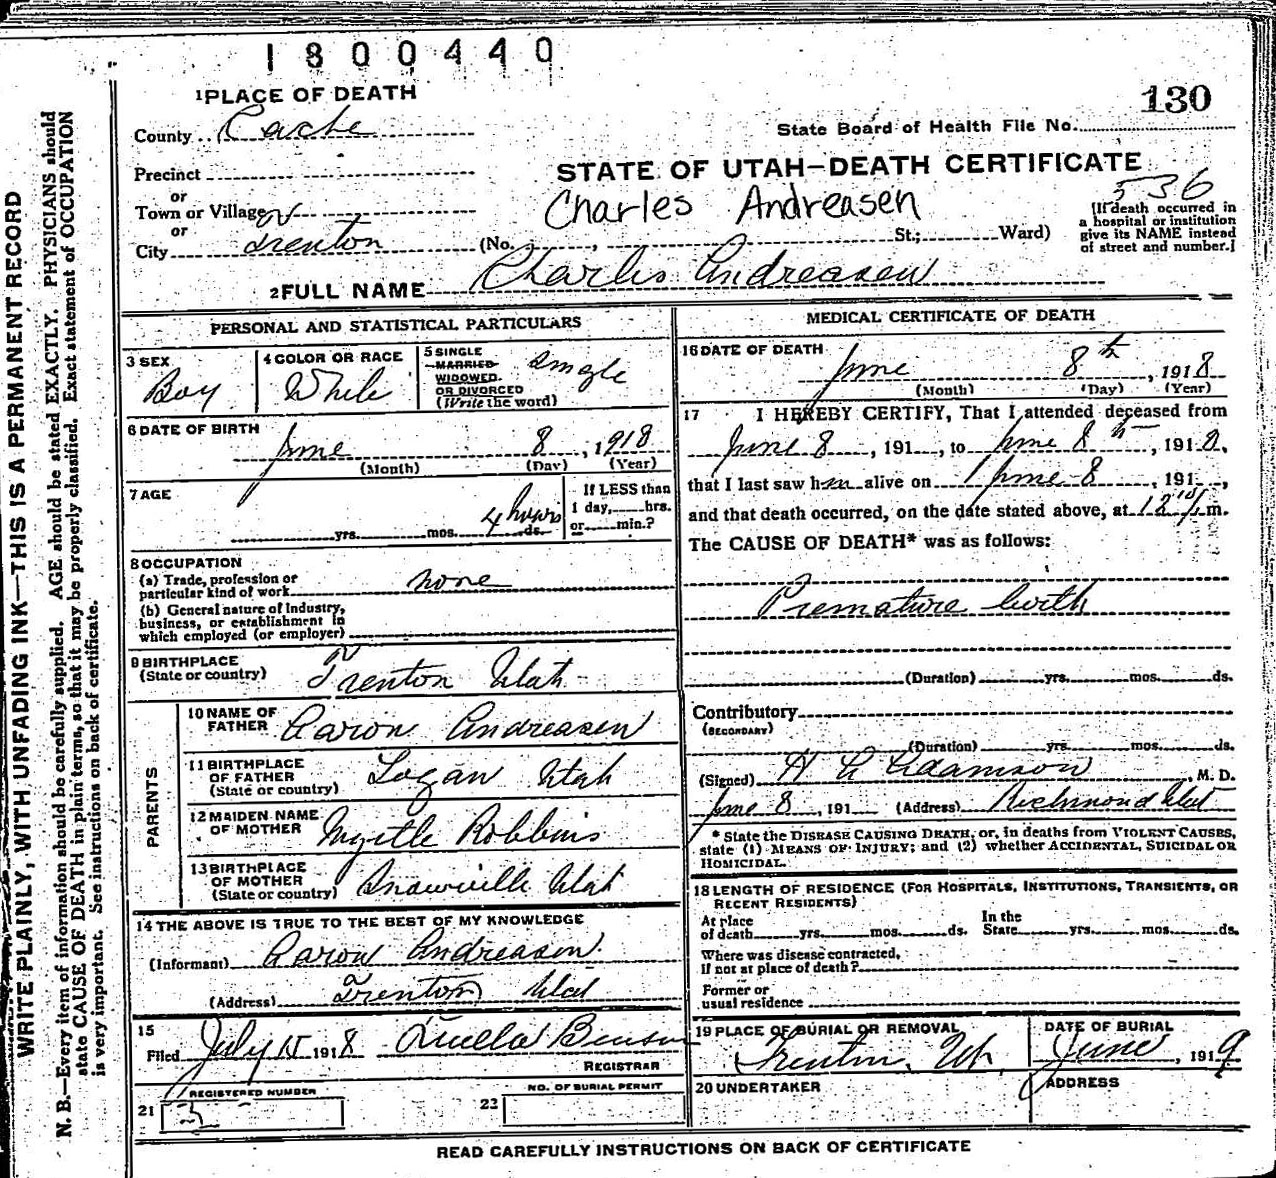 1800440
1 PLACE OF DEATH
130
County Cache
State Board of Health File No.
Precinct
STATE OF UTAH—DEATH CERTIFICATE
or
Town or Village
Charles Andreasen
536
or
City Trenton (No. , St.; Ward)
[If death occurred in
a hospital or institution
give its NAME instead
of street and number.]
2 FULL NAME Charles Andreasen
PERSONAL AND STATISTICAL PARTICULARS
3 SEX
Boy
4 COLOR OR RACE
White
5 SINGLE
MARRIED
WIDOWED
OR DIVORCED
(Write the word)
Single
6 DATE OF BIRTH
June 8, 1918
(Month) (Day) (Year)
7 AGE
4 hours
yrs. mos. ds.
If LESS than
1 day, hrs.
or min.?
8 OCCUPATION
(a) Trade, profession or
particular kind of work none
(b) General nature of Industry,
business, or establishment in
which employed (or employer)
9 BIRTHPLACE
(State or country) Trenton Utah
PARENTS
10 NAME OF
FATHER Aaron Andreasen
11 BIRTHPLACE
OF FATHER
(State or country) Logan Utah
12 MAIDEN NAME
OF MOTHER Myrtle Robbins
13 BIRTHPLACE
OF MOTHER
(State or country) Snowville Utah
14 THE ABOVE IS TRUE TO THE BEST OF MY KNOWLEDGE
(Informant) Aaron Andreasen
(Address) Trenton Utah
15
Filed July 15 1918 Luella Benson
REGISTRAR
REGISTERED NUMBER
NO. OF BURIAL PERMIT
21 3
22
MEDICAL CERTIFICATE OF DEATH
16 DATE OF DEATH
June 8th, 1918
(Month) (Day) (Year)
17 I HEREBY CERTIFY, That I attended deceased from
June 8, 191 , to June 8th, 1918,
that I last saw him alive on June 8, 191 ,
and that death occurred, on the date stated above, at 12 m.
The CAUSE OF DEATH* was as follows:
Premature birth
(Duration) yrs. mos. ds.
Contributory
(SECONDARY)
(Duration) yrs. mos. ds.
(Signed) H C Adamson, M. D.
June 8, 191 (Address) Richmond Utah
* State the DISEASE CAUSING DEATH, or, in deaths from VIOLENT CAUSES,
state (1) MEANS OF INJURY; and (2) whether ACCIDENTAL, SUICIDAL OR
HOMICIDAL.
18 LENGTH OF RESIDENCE (FOR HOSPITALS, INSTITUTIONS, TRANSIENTS, OR
RECENT RESIDENTS)
At place
of death yrs. mos. ds.
In the
State yrs. mos. ds.
Where was disease contracted,
if not at place of death?
Former or
usual residence
19 PLACE OF BURIAL OR REMOVAL
Trenton, Ut.
DATE OF BURIAL
June, 1919
20 UNDERTAKER
ADDRESS
READ CAREFULLY INSTRUCTIONS ON BACK OF CERTIFICATE
WRITE PLAINLY, WITH UNFADING INK—THIS IS A PERMANENT RECORD
N. B.—Every item of information should be carefully supplied. AGE should be stated EXACTLY. PHYSICIANS should
state CAUSE OF DEATH in plain terms, so that it may be properly classified. Exact statement of OCCUPATION
is very important. See instructions on back of certificate.